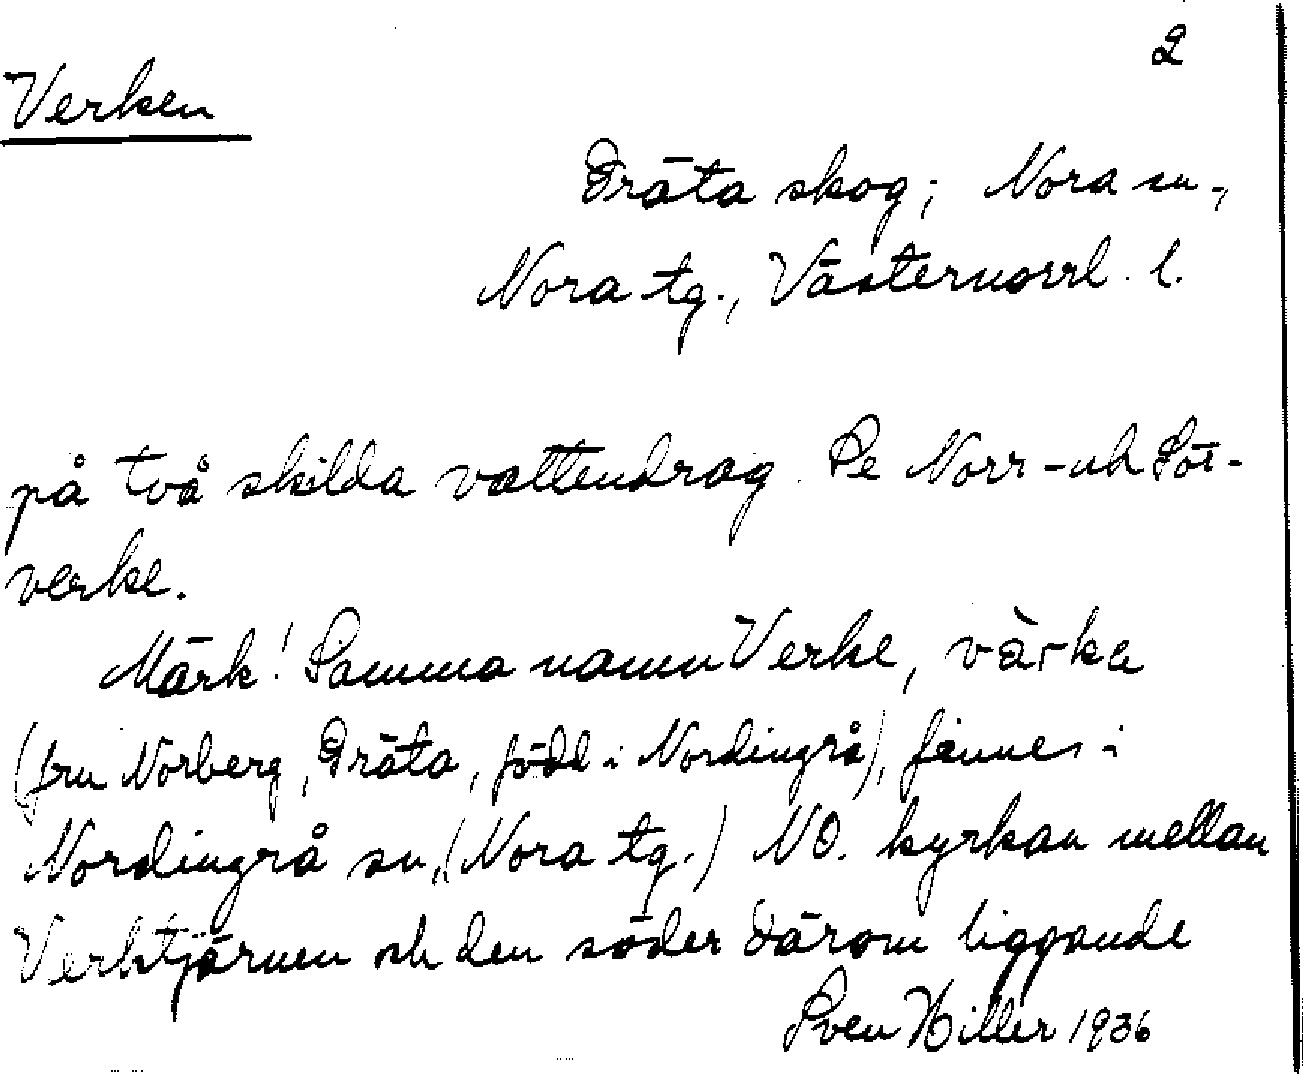 2
Verken
Dräta skog; Nora sn.,
Nora tg., Västernorrl. l.
på två skilda vattendrag. Se Norr- och Sör-
verke.
Märk! Samma namn Verke, värke
(fru Norberg, Dräta, född i Nordingrå), finnes i
Nordingrå sn, (Nora tg.) NO. kyrkan mellan
Verktjärnen och den söder därom liggande
Sven Hiller 1936